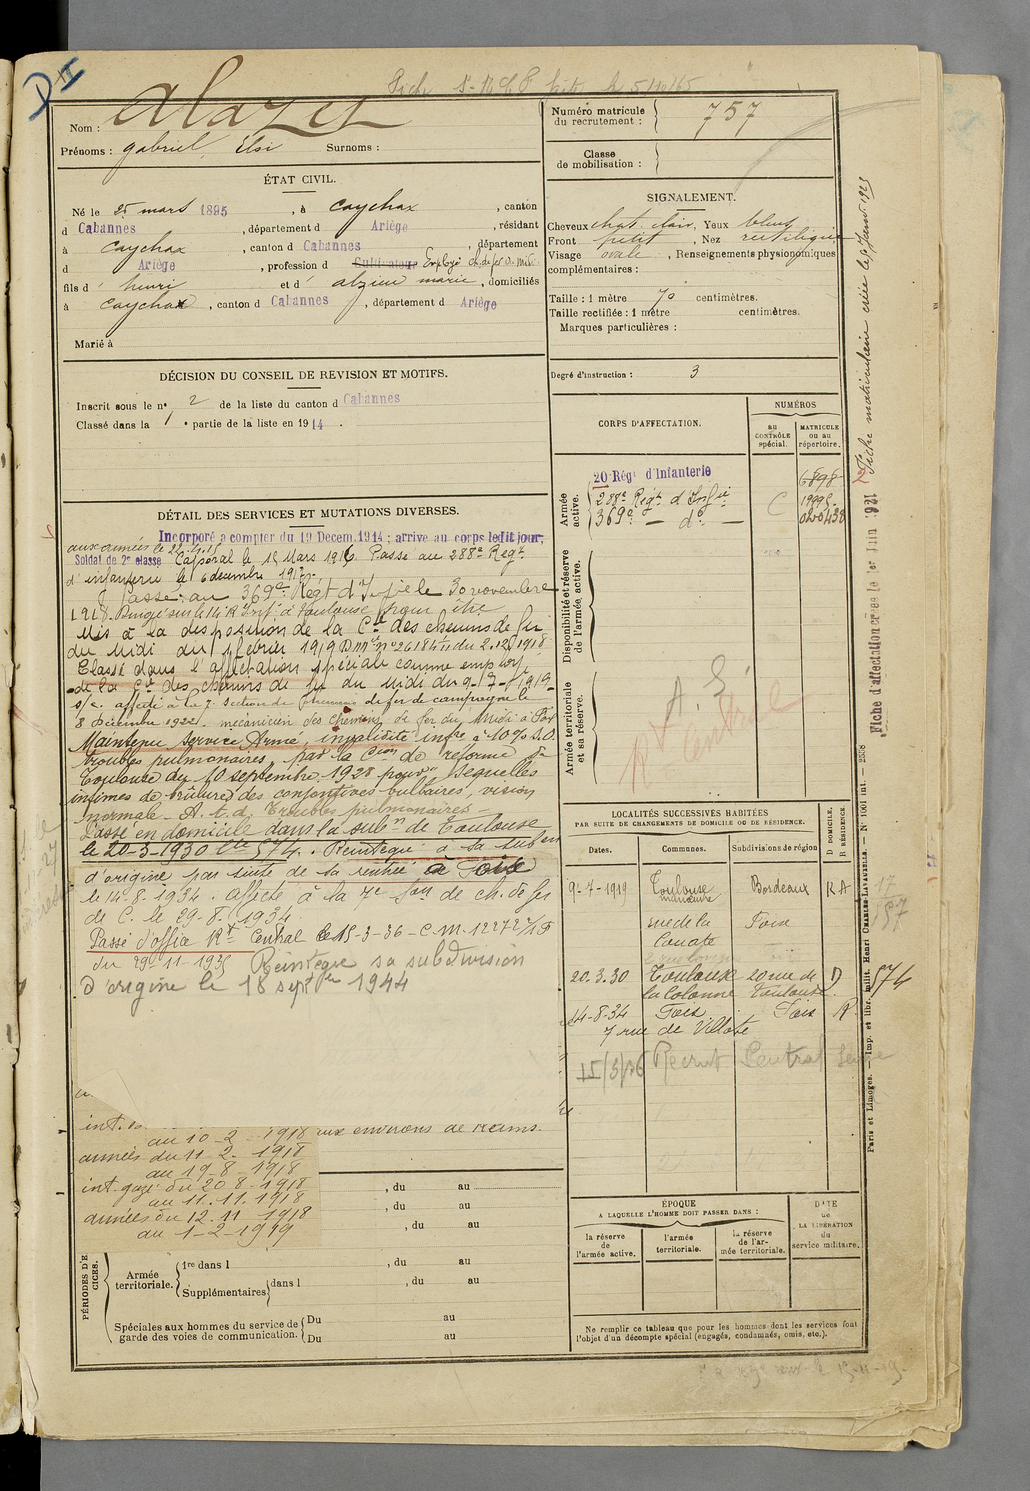 DII
Fiche
Nom : Alazet
Prénoms : gabriel, Elsi Surnoms :
Numéro matricule
du recrutement : 757
Classe
de mobilisation :
ÉTAT CIVIL.
Né le 25 mars 1895, à Caychax, canton
d Cabannes, département d Ariège, résidant
à Caychax, canton d Cabannes, département
d Ariège, profession d Cultivateur Employé Ch. de fer d. Midi
fils d' henri et d' alzieu marie, domiciliés
à Caychax, canton d Cabannes, département d Ariège
Marié à
SIGNALEMENT.
Cheveux chat. clair, Yeux bleus
Front petit, Nez rectiligne
Visage ovale, Renseignements physionomiques
complémentaires :
Taille : 1 mètre 70 centimètres.
Taille rectifiée : 1 mètre centimètres.
Marques particulières :
Degré d'instruction : 3
DÉCISION DU CONSEIL DE REVISION ET MOTIFS.
Inscrit sous le n° 2 de la liste du canton d Cabannes
Classé dans la 1 e partie de la liste en 1914.
CORPS D'AFFECTATION.
NUMÉROS
au
CONTRÔLE
spécial.
MATRICULE
ou au
répertoire.
Armée
active.
20 Régt d'Infanterie 6898
288e Régt d'Infie C
369e — do —
Disponibilité et réserve
de l'armée active.
Armée territoriale
et sa réserve.
A. S.
Rt Central
DÉTAIL DES SERVICES ET MUTATIONS DIVERSES.
Incorporé a compter du 19 Decem. 1914 ; arrive au corps ledit jour;
aux armées le
Soldat de 2e classe Caporal le 15 Mars 1916 Passé au 288e Régt
d'infanterie le 6 décembre 1917.
Passé au 369e Régt d'Infie le 30 novembre
1918. Dirigé sur le 14e R Infie à Toulouse pour être
Mis à la disposition de la Cie des chemins de fer
du Midi du 1 février 1919 D Mle n° 26184 11 du 2.12.1918
Classé dans l'affectation spéciale comme employé
de la Cie des chemins de fer du Midi du 9-7-1919
s/c. affecté à la 7e section de chemins de fer de campagne le
8 Décembre 1922. mécanicien des chemins de fer du Midi à Foix
Maintenu service Armé, invalidité infre à 10 % S.O.
troubles pulmonaires, par la Cion de réforme de
Toulouse du 10 septembre 1928 pour séquelles
infimes de brûlures des conjonctives bulbaires, vision
normale – A.t.d. Troubles pulmonaires –
Passé en domicile dans la subn de Toulouse
le 20-3-1930 Cte 574. Réintégré à sa subon
d'origine par suite de sa rentrée à Foix
le 14-8-1934. Affecté à la 7e Son de ch. de fer
de C. le 29-8-1934.
Passé d'office Rt Central le 15-3-36 - C.M. 12272 1/F
du 29-11-1935 Réintègre sa subdivision
d'origine le 18 septbre 1944
aux environs de reims.
au 10-2-1918
armées du 11-2-1918
au 19-8-1918
int. gazé du 20-8-1918
au 11.11.1918
armées du 12.11.1918
au 1-2-1919
, du au
, du au
, du au
PÉRIODES D'E
CICES.
Armée
territoriale.
1re dans l , du au
Supplémentaires dans l , du au
Spéciales aux hommes du service de
garde des voies de communication.
Du au
Du au
LOCALITÉS SUCCESSIVES HABITÉES
PAR SUITE DE CHANGEMENTS DE DOMICILE OU DE RÉSIDENCE.
Dates. Communes. Subdivisions de région
D DOMICILE,
R RÉSIDENCE
9-7-1919 Toulouse Bordeaux RA
rue de la Foix
20.3.30 Toulouse 20 rue de D 574
la Colonne Toulouse
14-8-34 Foix Foix R
7 rue de Villote
15/3/36 Recrut Central Seine
17
157
ÉPOQUE
A LAQUELLE L'HOMME DOIT PASSER DANS :
la réserve
de
l'armée active.
l'armée
territoriale.
la réserve
de l'ar-
mée territoriale.
DATE
de
LA LIBÉRATION
du
service militaire.
Ne remplir ce tableau que pour les hommes dont les services font
l'objet d'un décompte spécial (engagés, condamnés, omis, etc.).
Fiche matriculaire créée le
Fiche d'affectation créée le 1er Juin 1921
Paris et Limoges. — Imp. et libr. milit. Henri CHARLES-LAVAUZELLE. — N° 1601 int. — 2558